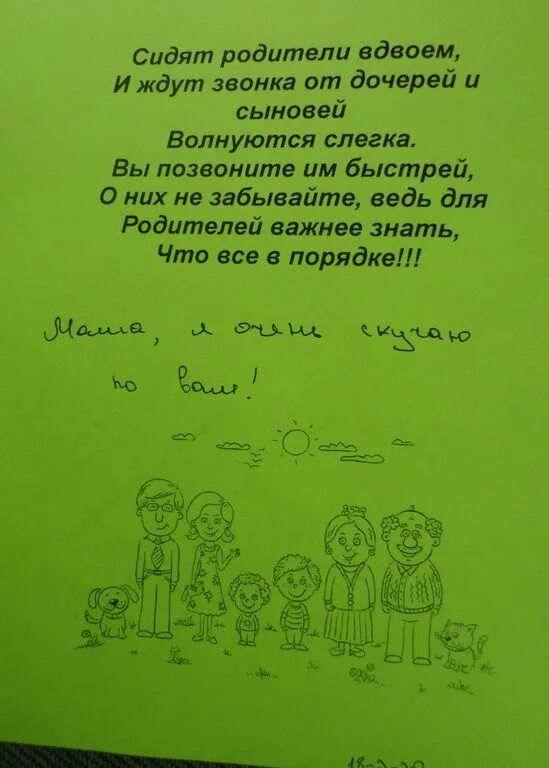 Сидят родители вдвоем,
И ждут звонка от дочерей и
сыновей
Волнуются слегка.
Вы позвоните им быстрей,
О них не забывайте, ведь для
Родителей важнее знать,
Что все в порядке!!!
Мама, я очень скучаю
по вам!